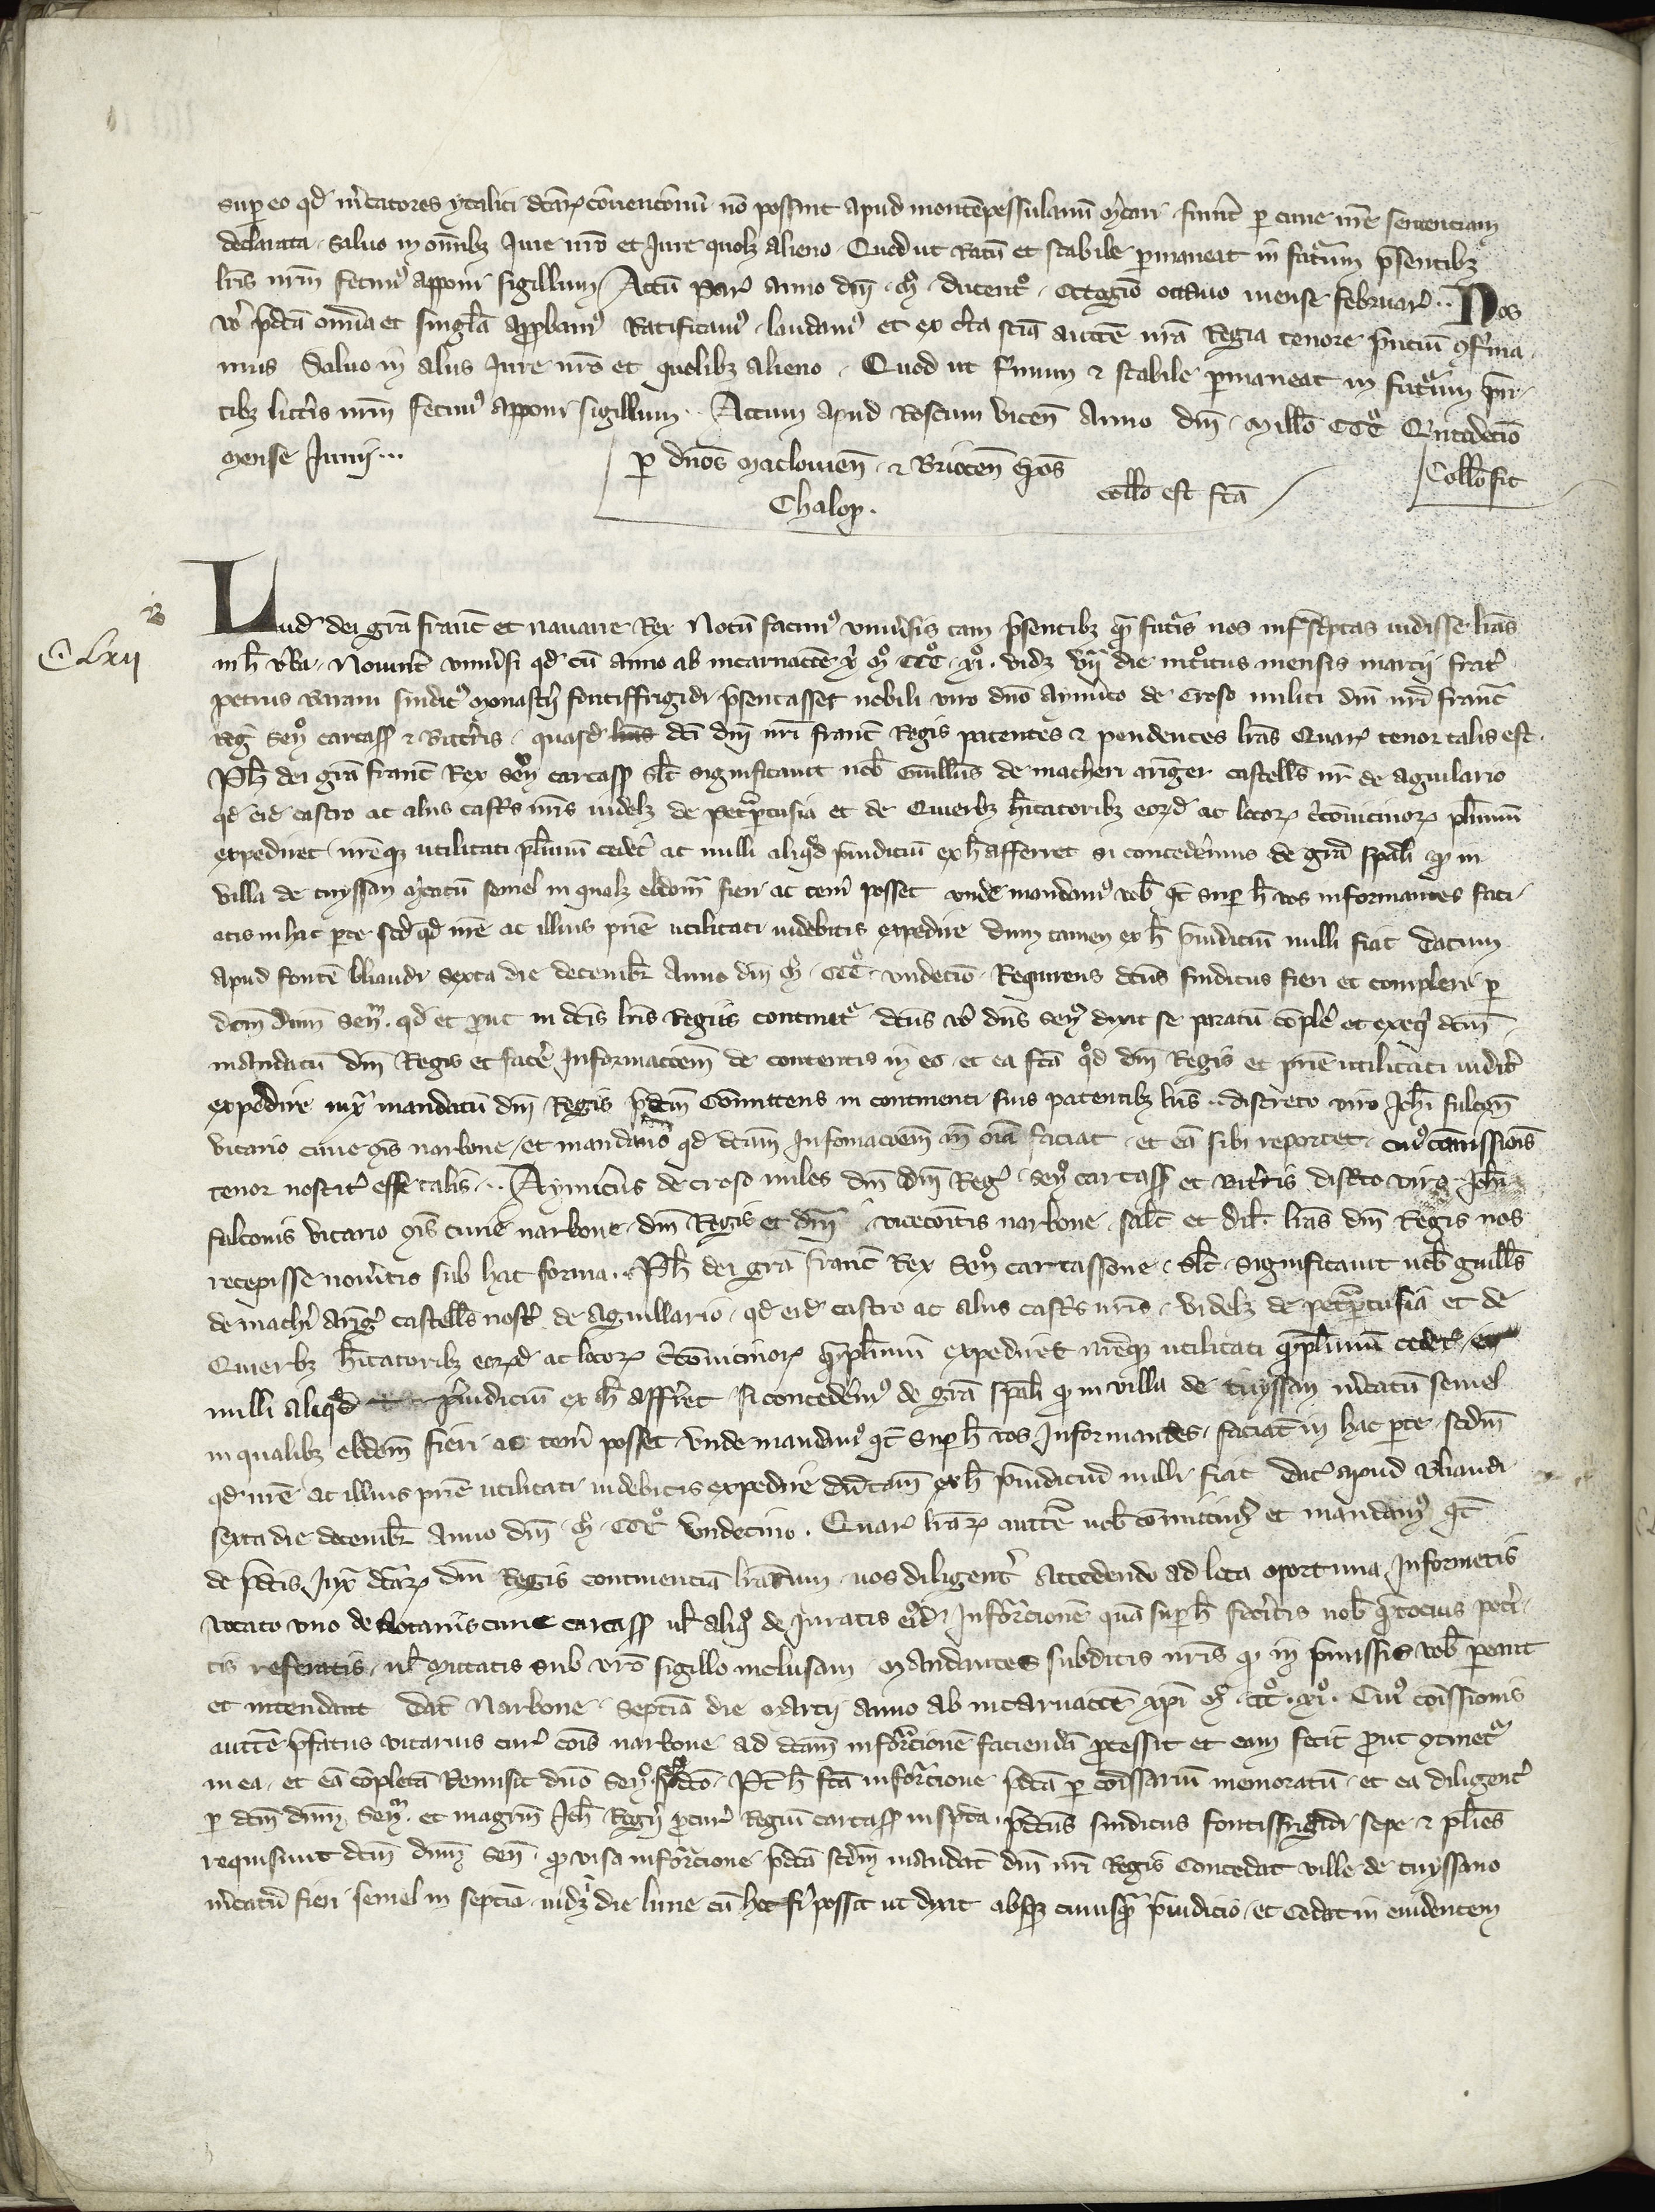 sup eo qd m̃catores ytalici dcãrꝝ ↄuenconũ nõ possint apud montẽpessulanũ m̃cari fuint̃ p curie nr̃e sentenciam
declarata. Saluo in om̃ibꝫ Jure nr̃o et Jure quolꝫ alieno. Quod ut Ratũ et stabile pmaneat in futurum p̃sentibꝫ
lr̃is nr̃m fecimꝰ apponi sigillum. Actũ Par̃ anno dñi. mͦ. ducentͦ. octogͦ octauo mense februar̃.. Nos
vͦ p̃dcã om̃ia et singlã appbamꝰ Ratificamꝰ laudamꝰ et ex c̃ta sciã auctte nr̃a Regia tenore p̃nciũ ↄfirma
mus Saluo in aliis Jure nr̃o et quolibꝫ alieno. Quod ut firmum ⁊ stabile pmaneat in futurum p̃n
tibꝫ litt̃is nr̃m fecimꝰ apponi sigillum. Actum apud boscum vicen̄ Anno dñi Mill̃o CCCͦ Quĩtodecĩo
Mense Junij...
p dños maclouien̄. ⁊ Briocen̄ ep̃os
Chalop.
coll̃o est fcã
Coll̃o fit
C lxij
Lud̃ dei grã franc̃ et nauarre Rex Notũ facimꝰ vniu̾sis tam p̃sentibꝫ q̃ futuris nos infrasc̃ptas uidisse lr̃as
in h̃ v̾ba. Nouint̃ vniu̾si qd cũ anno ab incarnacõe xp̃i mͦ CCCͦ xjͦ. videlꝫ vij die introitus mensis marcij frat̃
petrus sindicꝰ monast̾ij fontisfrigidi p̃sentasset nobili viro dño aym̾ico de Croso militi dñi nr̃i franc̃
Reg̃ Sen̾ carcass̃ ⁊ bitt̾ris. quasd̃ lr̃as dcĩ dñi nr̃i franc̃ Regis patentes ⁊ pendentes lr̃as Quarꝝ tenor talis est.
Ph̃ dei grã franc̃ Rex sen̾ carcass̃ slt̃ significauit nob̃ Guill̃us de macheri castell̃s nr̃ de aguilario
qd eid̃ castro ac aliis castris nr̃is videlꝫ de petrapertusia et de Quierbꝫ h̃itatoribꝫ eorꝝd̃ ac locorꝝ c̃cõuicinorꝝ pl̃imũ
expediret nr̃eqꝫ utilitati pl̃imũ ced̾et ac nulli aliqd̃ p̃iudiciũ ex h̃ afferret si concederemus de grã sp̃ali q̃ in
villa de tuyssan m̾catũ semel in qualꝫ ebdom̃ fieri ac ten̾i posset vnde mandamꝰ vob̃ qt̃ sup h̃ vos informantes faci
atis in hac pte scd̃ qd nr̃e ac illius prĩe utilitati uidebitis expedire dum tamen ex h̃ p̃iudiciũ nulli fiat Datum
apud fontẽ bliaudi sexta die decembr̃ Anno dñi mͦ. CCCͦ. vndecĩo. Requirens dcũs sindicus fieri et compleri p
dcm̃ dñm Sen̾. qd et prout in dcĩs lr̃is Regiis continetʳ dcũs vͦ dñs Sen̾ dixit se paratũ cõplere et exeq̃ dcm̃
mandatũ dñi Regis et face̾ Informacõem de contentis in eo. et ea fcã qd dñi Regis et prĩe utilitati uideb̾
expedire iuxͣ mandatũ dñi Regis p̃dcm̃ Committens in continenti suis patentibꝫ lr̃is discreto viro Joh̃i fulcon̄
vicario curie ↄis narbone et mandans qd dcãm Informacõem in oĩa faciat et eã sibi reportet. cuiꝰ cõmissionis
tenor noscit̾ esse talis.. Aym̾icus de croso miles dñi dñi Reg̃. sen̾ carcass̃ et bitt̾ris discreto viro Joh̃i
falconis vicario ↄis curie narbone. dñi Regis et dñi vicecõitis narbone salt̃ et dil̃. lr̃as dñi Regis nos
recepisse nou̾itis sub hac forma.. Ph̃ dei grã franc̃ Rex sen̾ carcassone. slt̃. significauit nob̃ guill̃s
de mach̾i castell̃s nost̾ de aguillario. qd eid̃ castro ac aliis castris nr̃is. videlꝫ de petrapertusia et de
Quierbꝫ h̃itatoribꝫ eorꝝd̃ ac locorꝝ c̃cõuicinorꝝ q̃pl̃imũ expediret nr̃eqꝫ utilitati q̃pl̃imũ ced̾et
nulli aliqd̃ p̃iudiciũ ex h̃ affr̾et si conced̾emꝰ de grã sp̃ali q̃ in villa de tuyssan m̾catũ semel
in qualibꝫ ebdom̃ fieri ac ten̾i posset vnde mandamꝰ qt̃ sup h̃ vos Informantes. faciat̃ in hac pte. scdm̃
qd nr̃e ac illius prĩe utilitati uidebitis expedire dũtam̃ ex h̃ p̃iudiciũ nulli fiat Dat̃ apud bliaudi
sexta die decembr̃ Anno dñi. mͦ. CCCͦ vndecimo. Quarꝝ lr̃arꝝ auctte vob̃ cõmittimꝰ et mandamꝰ qt̃
de p̃dcĩs Juxͣ dcãrꝝ dñi Regis continenciã lr̃arum vos diligent̾ Accedendo ad loca oportuna Informetis
vocato vno de Notariis curie carcass̃ ul̃ aliqͦ de Juratis eiꝰd̃ Informacionẽ quã sup h̃ fec̾itis nob̃ q̃tocius pot̾i
tis referatis. ul̃ Mittatis sub vr̃o sigillo inclusam. Mandantes subditis nr̃is q̃ in p̃missis vob̃ pareant
et intendant Dat̃ Narbone. Septĩa die Marcij anno ab incarnacõe xp̃i mͦ. CCCͦ. xjͦ. Cuiꝰ cõissionis
auctte p̃fatus vicarius cur̃ cõis narbone ad dcãm informacionẽ faciendã processit et eam fecit prout ↄtinetʳ
in ea. et eã cõpletã Remisit dño Sen̾ p̃dcõ. Pt̃ h̃ fcã informacione p̃dcã p cõissariũ memoratũ. et ea diligent̾
p dcm̃ dñm Sen̾. et magr̃m Joh̃ procur̃ Regiũ carcass̃ inspcã p̃dcũs sindicus fontisfrigidi sepe ⁊ pl̃ies
requisiuit dcm̃ dñm Sen̾. q̃ visa informacione p̃dcã scdm̃ mandat̃ dñi nr̃i Regis Concedat ville de tuyssano
m̾catũ fieri semel in septĩa. videlꝫ die lune cũ hoc fi̾ possit ut dixit absqꝫ cuiusq̃ p̃iudicio. et Cedat in euidentem